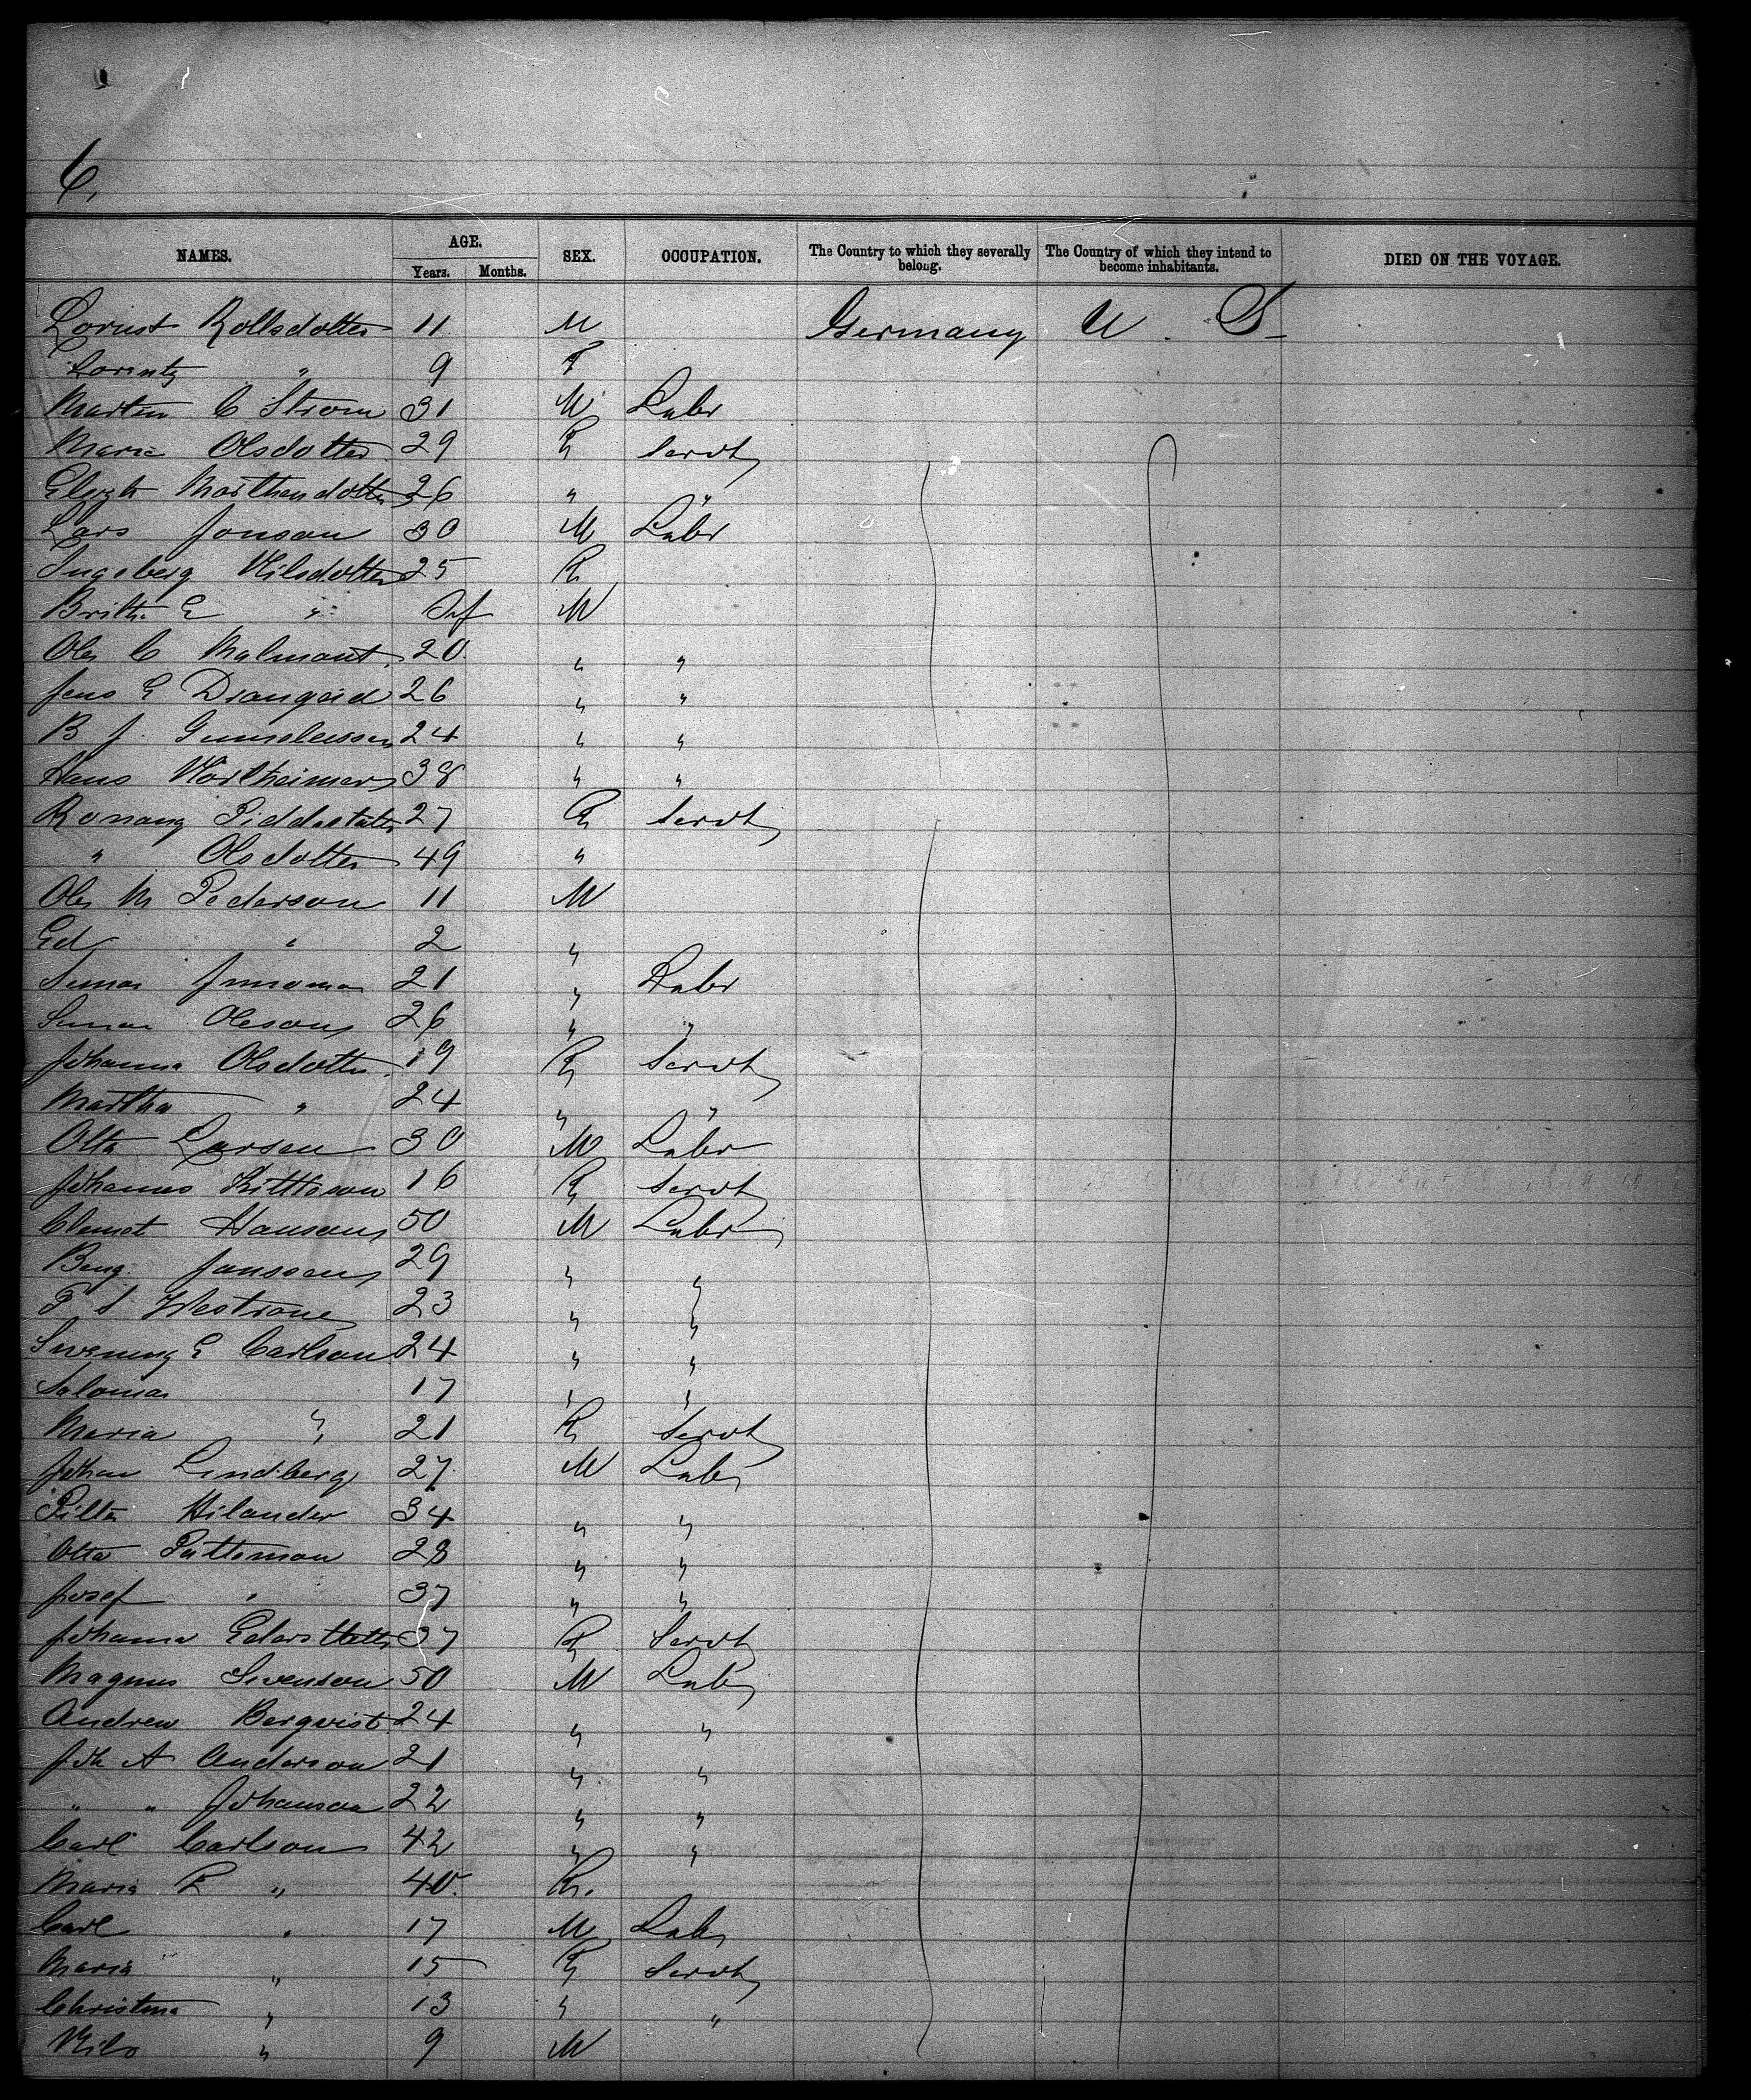 6,
NAMES. AGE. SEX. OCCUPATION. The Country to which they severally belong. The Country of which they intend to become inhabitants. DIED ON THE VOYAGE.
Years. Months.
Rollsdotter 11 M Germany U. S
Lorintz " 9 F
Martin C Strom 31 M Labr
Maria Olsdotter 29 F Servt
Marthendotter 26 " "
Lars Jonson 30 M Labr
Ingeberg Nilsdotter 25 F
Britha E " Inf M
Ole C Malmant 20 " "
Jens E Drangeid 26 " "
B J 24 " "
Hans Wortheimer 38 " "
27 F Servt
" Olsdotter 49 "
Ole M Pederson 11 M
Ed " 2 "
21 " Labr
Oleson 26 " "
Johanna Olsdotter 19 F Servt
Martha " 24 " "
Otto Larsen 30 M Labr
Johannes 16 F Servt
Clemet Hanson 50 M Labr
Beng Jansson 29 " "
P S 23 " "
E Carlson 24 " "
17 " "
Maria " 21 F Servt
Johan Lindberg 27 M Labr
Hilander 34 " "
Otto Patteman 28 " "
Josef " 37 " "
Johanna 37 F Servt
Magnus Swenson 50 M Labr
Andrew Berqvist 24 " "
Joh A Anderson 21 " "
" " Johanson 22 " "
Carl Carlson 42 " "
Maria " 40 F.
Carl " 17 M Labr
Maria " 15 F Servt
Christina " 13 " "
Nils " 9 M